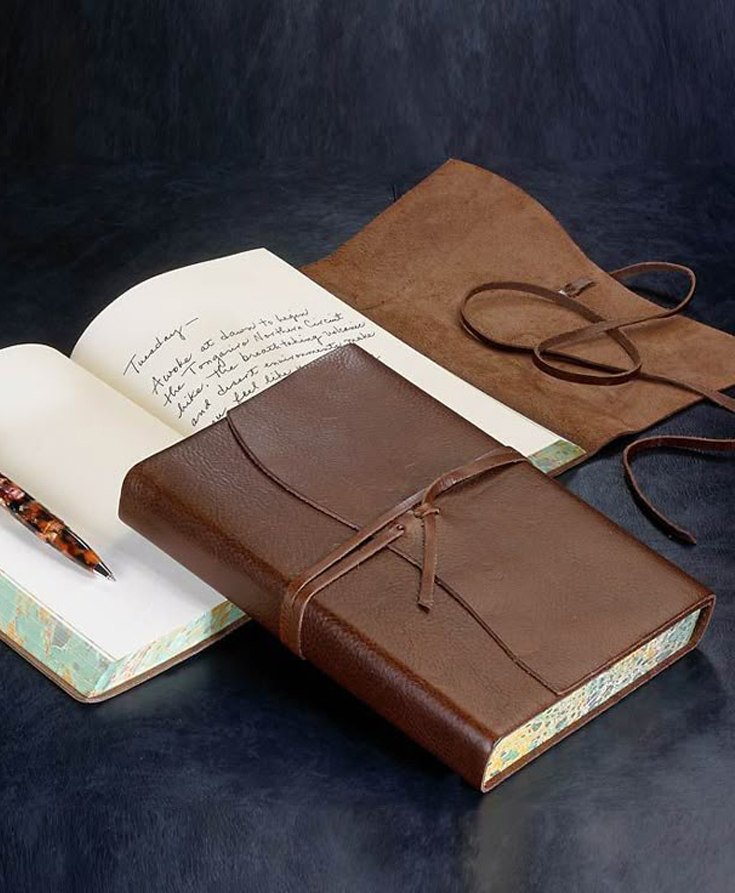 Tuesday—
Awoke at dawn to begin
the Tongariro Northern Circuit
hike. The breathtaking volcanic
and desert environments make
feel like